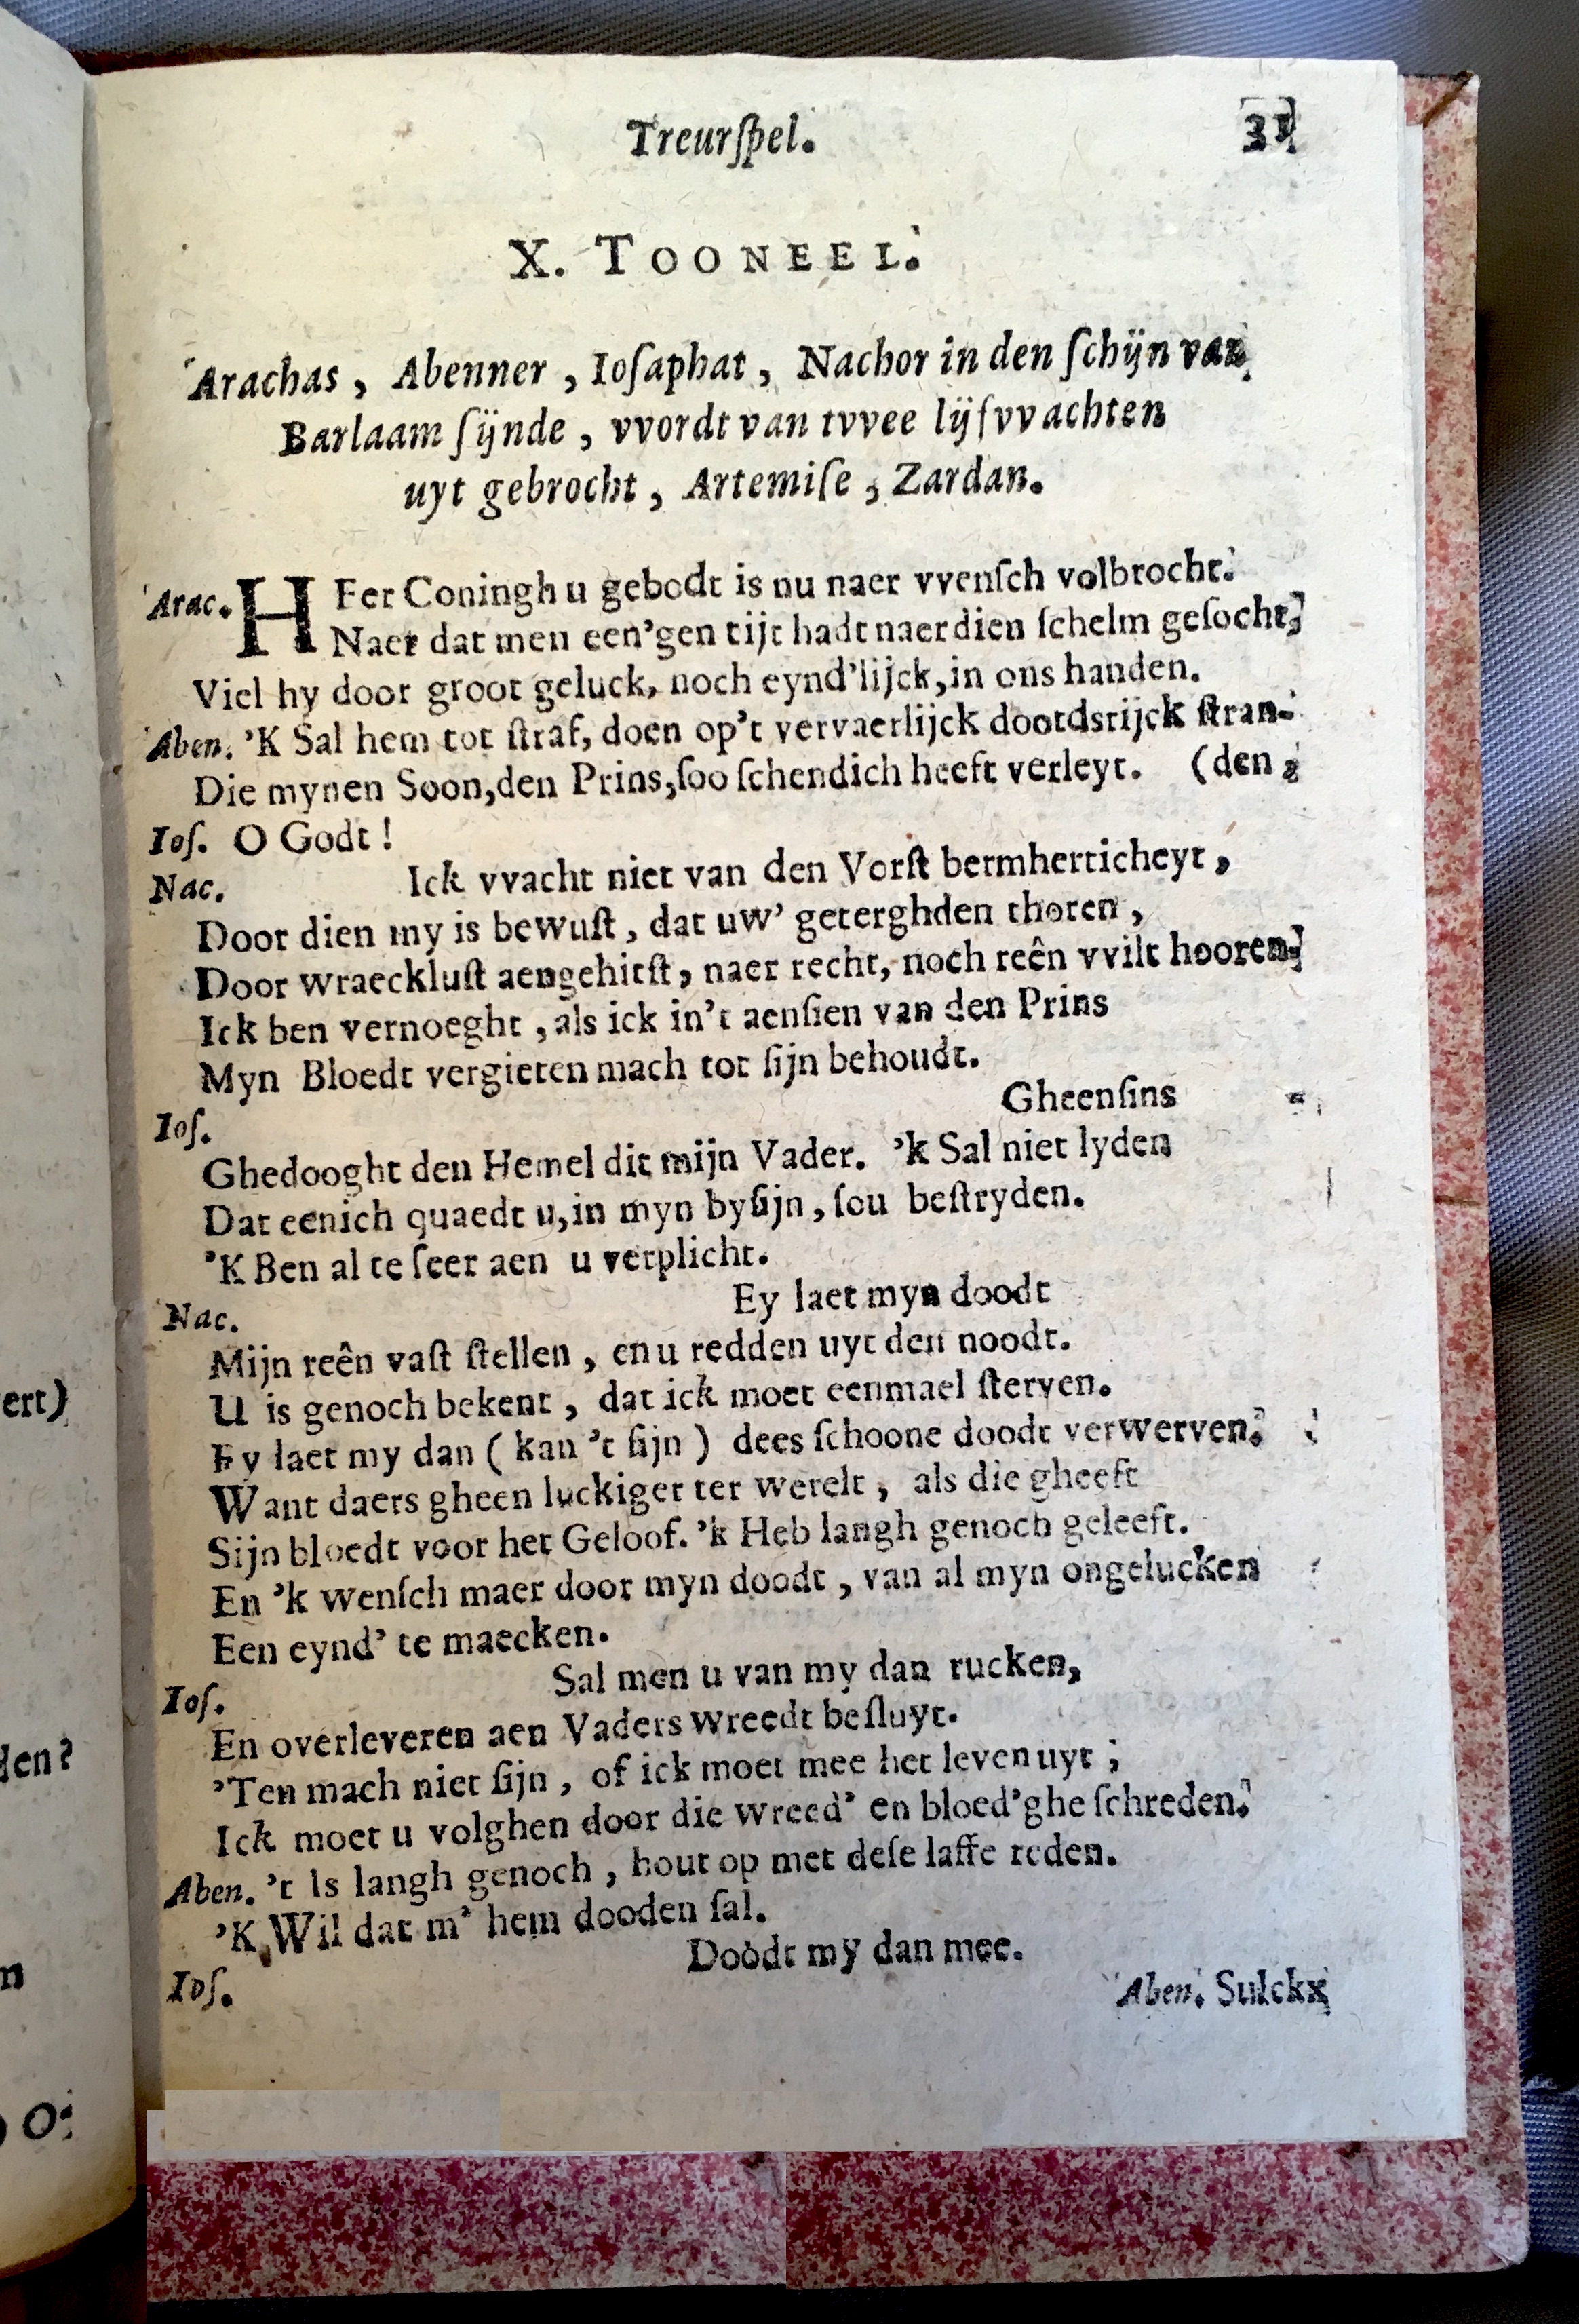 Treurſpel. 31
X. TOONEEL.
Arachas, Abenner, Ioſaphat, Nachor in den ſchijn van
Barlaam ſijnde, vvordt van tvvee lijfvvachten
uyt gebrocht, Artemiſe, Zardan.
Arac. HEer Coningh u gebodt is nu naer vvenſch volbrocht.
Naer dat men een'gen tijt hadt naer dien ſchelm geſocht,
Viel hy door groot geluck, noch eynd'lijck, in ons handen.
Aben. 'K Sal hem tot ſtraf, doen op't vervaerlijck dootdsrijck ſtran-
Die mynen Soon, den Prins, ſoo ſchendich heeft verleyt. (den,
Ioſ. O Godt!
Nac. Ick vvacht niet van den Vorſt bermherticheyt,
Door dien my is bewuſt, dat uw' geterghden thoren,
Door wraeckluſt aengehitſt, naer recht, noch reên vvilt hooren.
Ick ben vernoeght, als ick in't aenſien van den Prins
Myn Bloedt vergieten mach tot ſijn behoudt.
Ioſ. Gheenſins
Ghedooght den Hemel dit mijn Vader. 'k Sal niet lyden
Dat eenich quaedt u, in myn byſijn, ſou beſtryden.
'K Ben al te ſeer aen u verplicht.
Nac. Ey laet myn doodt
Mijn reên vaſt ſtellen, en u redden uyt den noodt.
U is genoch bekent, dat ick moet eenmael ſterven.
Ey laet my dan (kan 't ſijn) dees ſchoone doodt verwerven.
Want daers gheen luckiger ter werelt, als die gheeft
Sijn bloedt voor het Geloof. 'k Heb langh genoch geleeft.
En 'k wenſch maer door myn doodt, van al myn ongelucken
Een eynd' te maecken.
Ioſ. Sal men u van my dan rucken,
En overleveren aen Vaders wreedt beſluyt.
'Ten mach niet ſijn, of ick moet mee het leven uyt;
Ick moet u volghen door die wreed' en bloed'ghe ſchreden.
Aben. 't Is langh genoch, hout op met deſe laffe reden.
'K Wil dat m' hem dooden ſal.
Ioſ. Doodt my dan mee.
Aben. Sulckx
ert)
den?
n
O